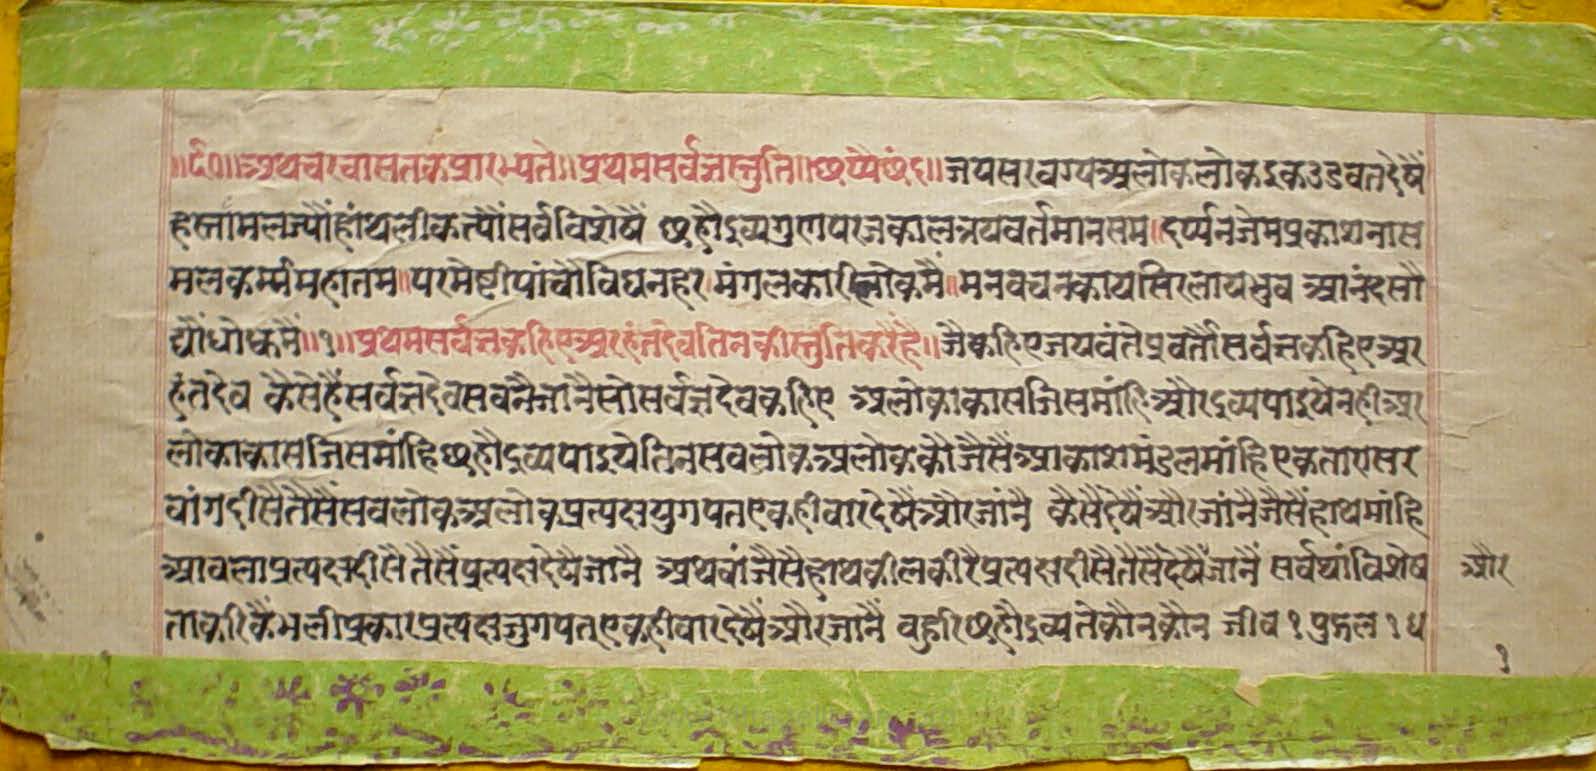 ॥ऽ६०॥अथचरचासतकप्रारभ्यते॥प्रथमसर्वज्ञस्तुति॥छप्पैछंद॥जयसरवग्यअलोकलोकइकउडवतदेषैं
हस्तामलज्यौंहांथलीकज्यौंसर्वविशेषैं छहौंद्रव्यगुणपरजकालत्रयवर्तमानसम॥दर्प्पनजेमप्रकाशनास
मलकर्म्ममहातम॥परमेष्टीपांचौंविघनहर।मंगलकारीलोकमैं॥मनवचनकायसिरलायभुव आनंदसौं
द्यौंधोकमैं॥१॥प्रथमसर्वज्ञकहिएअरहंतदेवतिनकीस्तुतिकरैंहै॥जैकहिएजयवंतेप्रवर्तौसर्वज्ञकहिएअर
हंतदेव कैसेहैंसर्वज्ञदेवसवनैजानैसोसर्वज्ञदेवकहिए अलोकाकासजिसमांहिऔरद्रव्यपाइयेनहीअर
लोकाकासजिसमांहिछहौंद्रव्यपाइयेतिनसवलोकअलोककौजैसैंआकाशमंडलमांहिएकतारासर
वांगदीसैतैसैंसवलोकअलोकप्रत्यक्षयुगपतएकहीवारदेषैंऔरजांनै कैसैंदेषैंऔरजांनैजैसैंहाथमांहि
आवलाप्रत्यक्षदीसैतैसैंप्रत्यक्षदेषैजानै अथवांजैसैंहाथकीलकीरैप्रत्यक्षदीसैतैसैंदेषैंजांनैं सर्वथांविशेष और
ताकरिकैंभलीप्रकारप्रत्यक्षजुगपतएकहीवारदेषैंऔरजांनैं वहुरिछहौंद्रव्यतेकौनकौन जीव१पुद्गल१ध
१